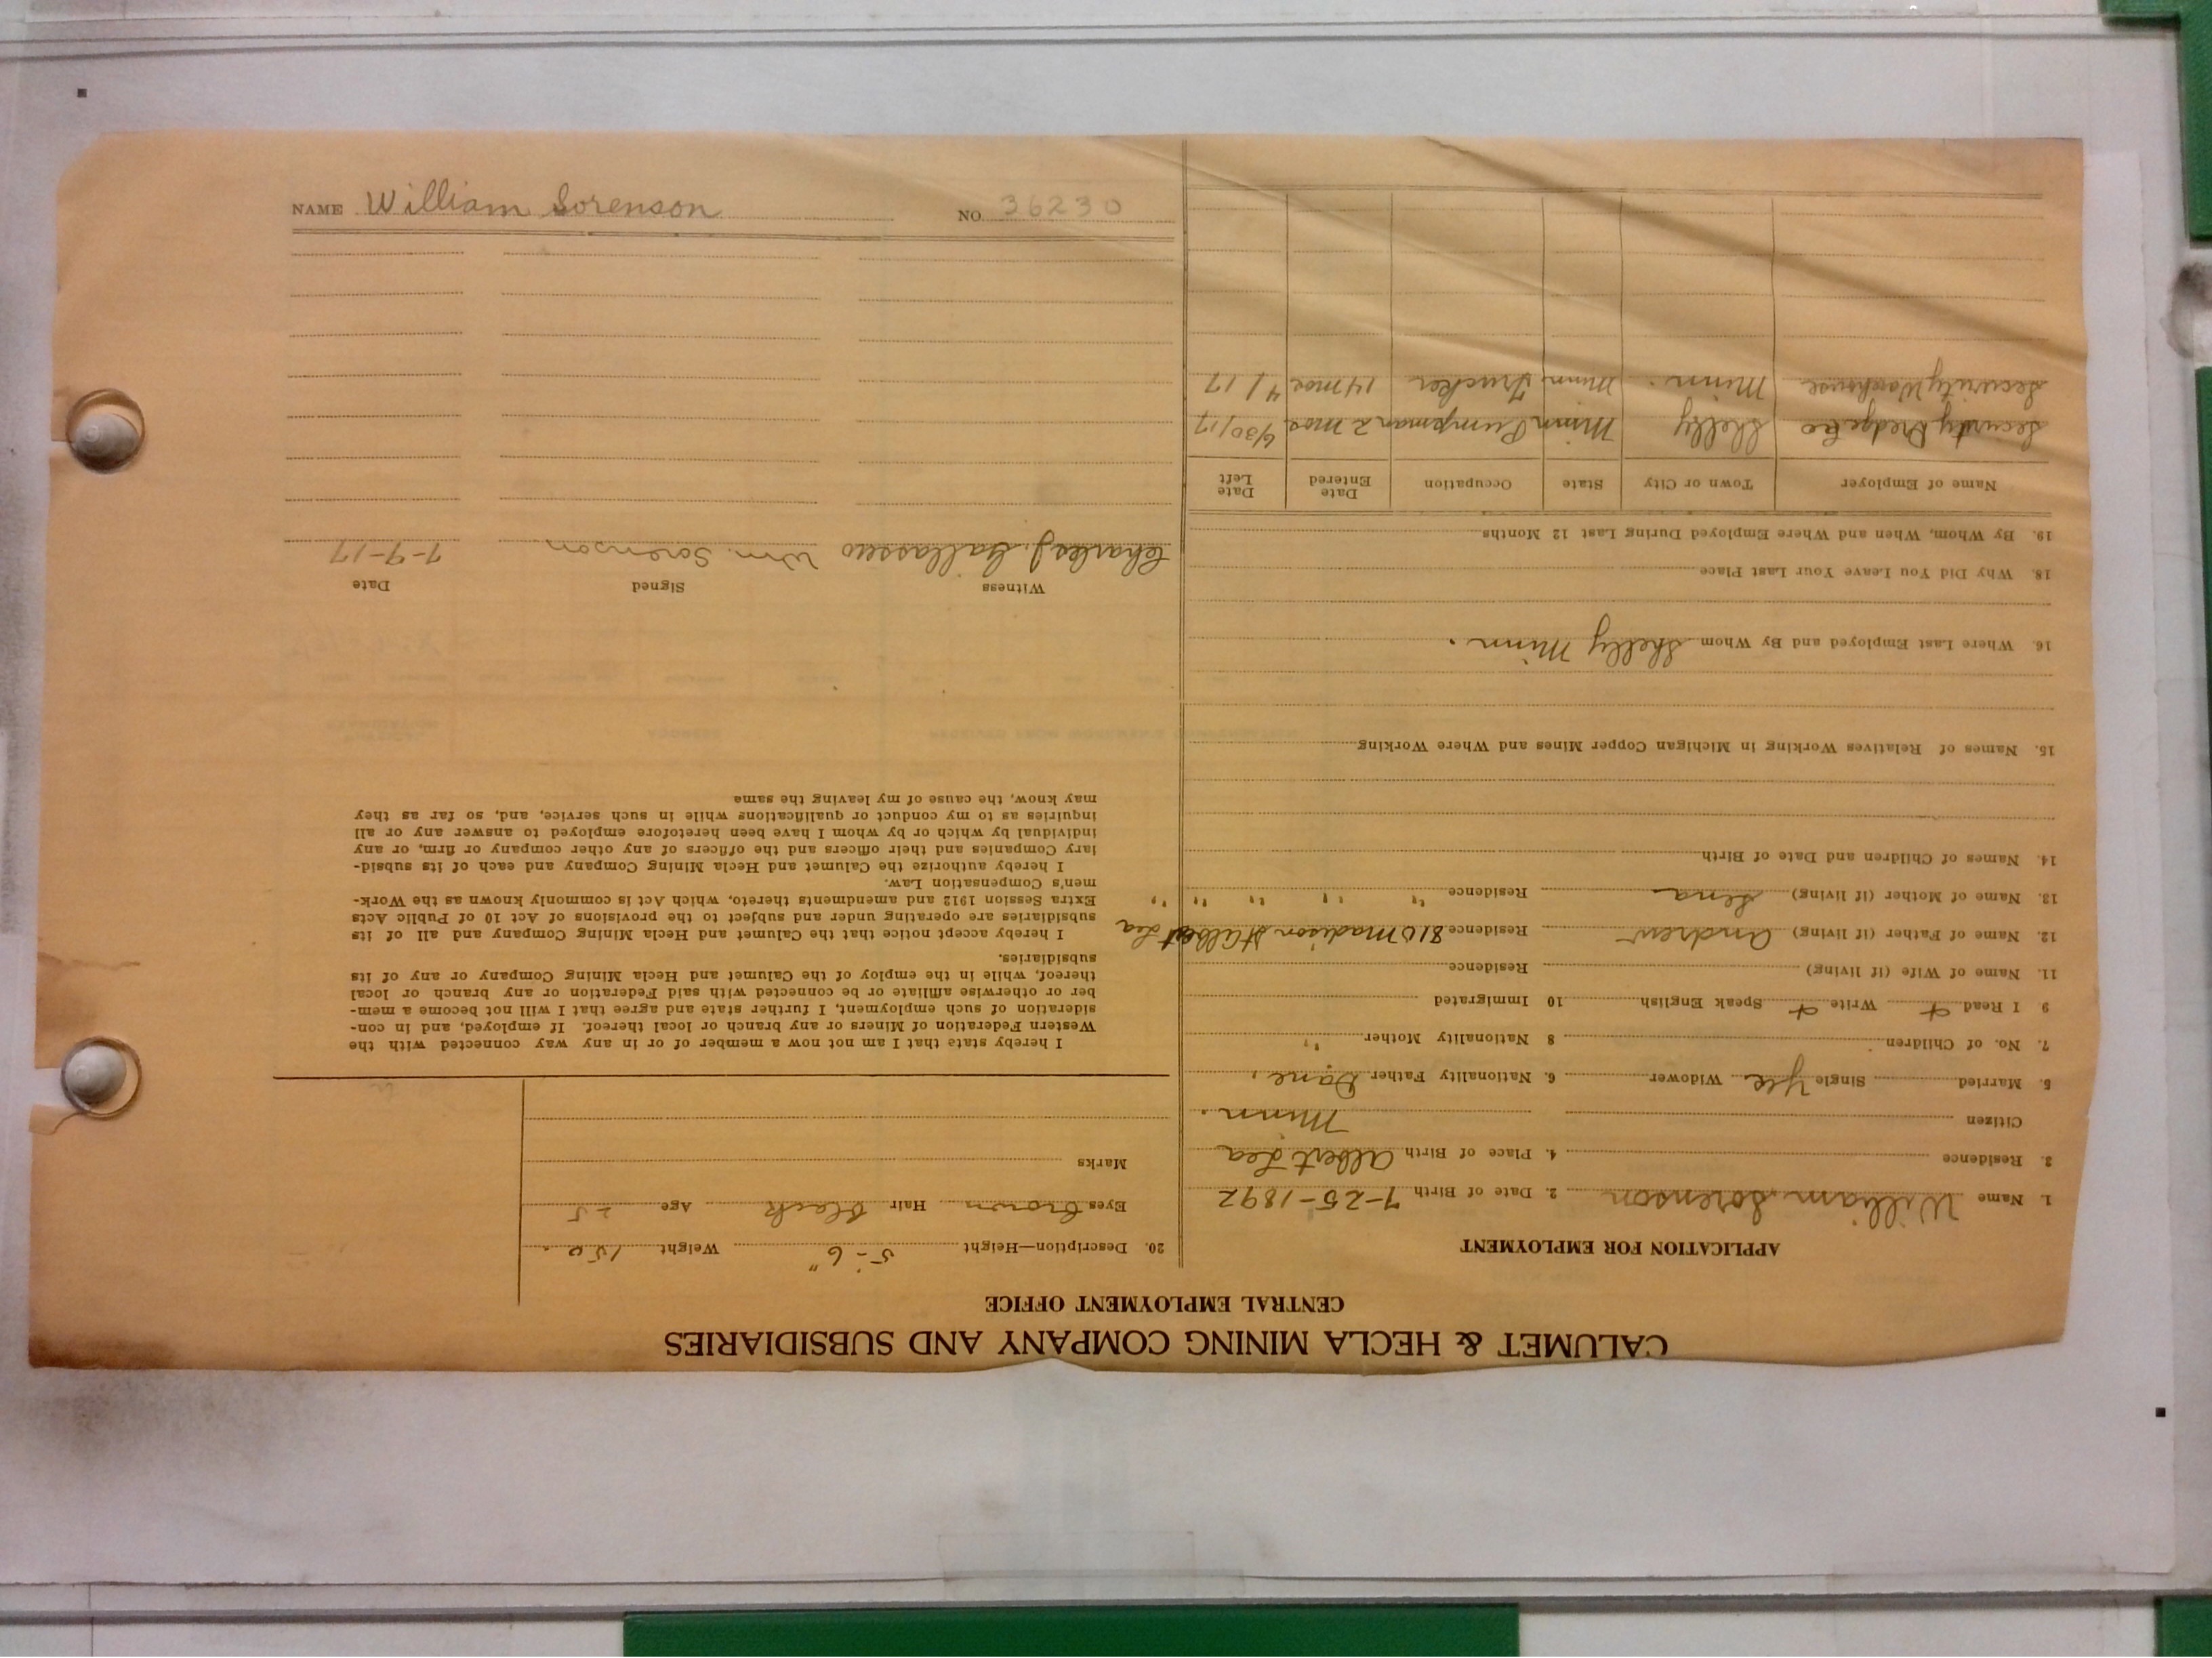 CALUMET & HECLA MINING COMPANY AND SUBSIDIARIES
CENTRAL EMPLOYMENT OFFICE
APPLICATION FOR EMPLOYMENT
1. Name William Sorenson 2. Date of Birth 7-25-1892
3. Residence 4. Place of Birth Albert Lea
Citizen Minn.
5. Married Single Yes Widower 6. Nationality Father Dane
7. No. of Children 8 Nationality Mother "
9 I Read + Write + Speak English 10 Immigrated
11. Name of Wife (if living) Residence
12. Name of Father (if living) Andrew Residence 810 Madison St Albert Lea
13. Name of Mother (if living) Lena Residence " " " " " "
14. Names of Children and Date of Birth
15. Names of Relatives Working in Michigan Copper Mines and Where Working
16. Where Last Employed and By Whom Shelly Minn.
18. Why Did You Leave Your Last Place
19. By Whom, When and Where Employed During Last 12 Months
Name of Employer Town or City State Occupation Date Entered Date Left
Security Dredge Co Shelly Minn Pumpman 2 mos 6/30/17
Security Warehouse Minn. Minn Trucker 14 mos 4/17
20. Description—Height 5'-6" Weight 150.
Eyes Brown Hair Black Age 25
Marks
I hereby state that I am not now a member of or in any way connected with the
Western Federation of Miners or any branch or local thereof. If employed, and in con-
sideration of such employment, I further state and agree that I will not become a mem-
ber or otherwise affiliate or be connected with said Federation or any branch or local
thereof, while in the employ of the Calumet and Hecla Mining Company or any of its
subsidiaries.
I hereby accept notice that the Calumet and Hecla Mining Company and all of its
subsidiaries are operating under and subject to the provisions of Act 10 of Public Acts
Extra Session 1912 and amendments thereto, which Act is commonly known as the Work-
men's Compensation Law.
I hereby authorize the Calumet and Hecla Mining Company and each of its subsid-
iary Companies and their officers and the officers of any other company or firm, or any
individual by which or by whom I have been heretofore employed to answer any or all
inquiries as to my conduct or qualifications while in such service, and, so far as they
may know, the cause of my leaving the same
Witness Signed Date
Charles J. Wm. Sorenson 7-9-17
NAME William Sorenson NO. 36230